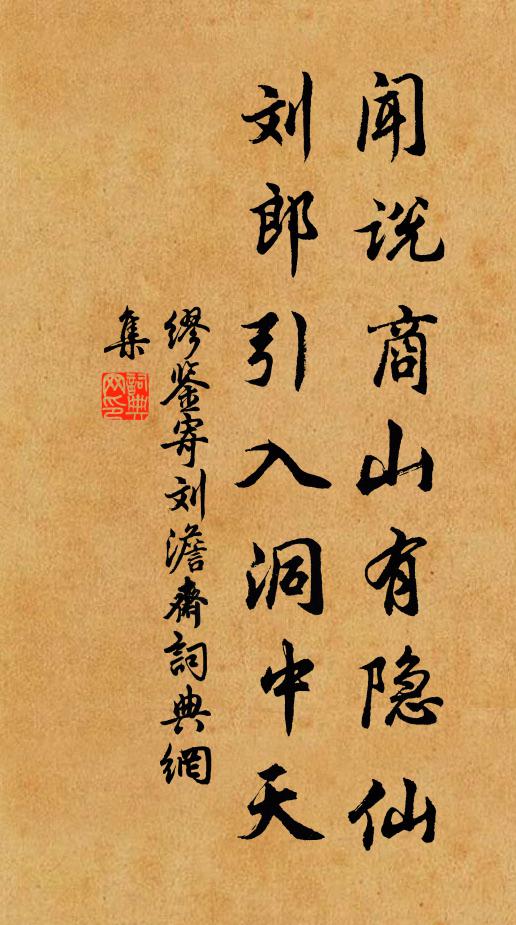 闻说商山有隐仙
刘郎引入洞中天
缪鉴寄刘澹斋词典網
集
詞典網印